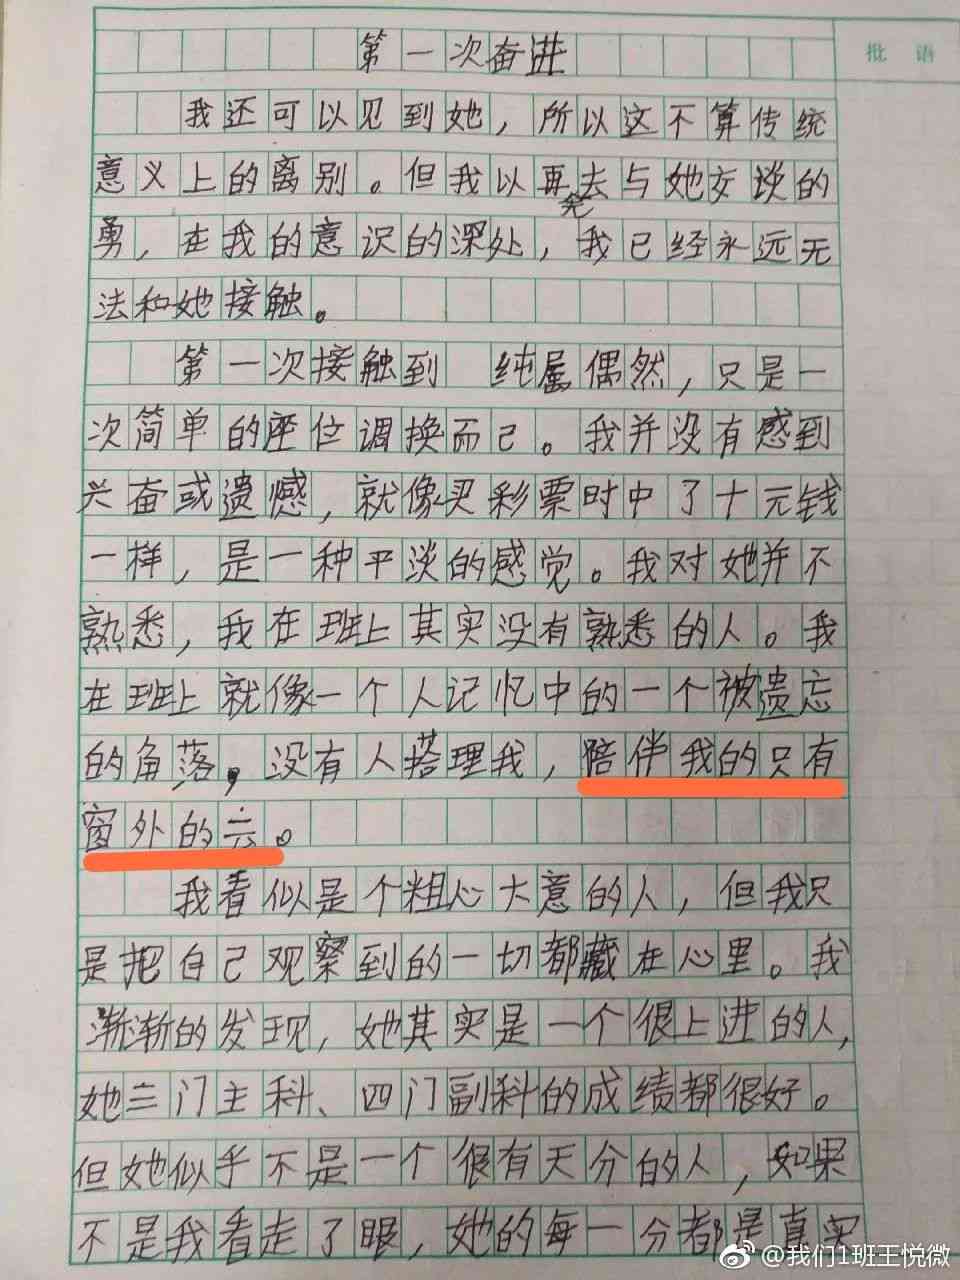 第一次奋进
批语
我还可以见到她，所以这不算传统
意义上的离别。但我以再去与她交谈的
勇，在我的意识的深处，我已经永远无
法和她接触。
第一次接触到 纯属偶然，只是一
次简单的座位调换而已。我并没有感到
兴奋或遗憾，就像买彩票时中了十元钱
一样，是一种平淡的感觉。我对她并不
熟悉，我在班上其实没有熟悉的人。我
在班上就像一个人记忆中的一个被遗忘
的角落，没有人搭理我，陪伴我的只有
窗外的云。
我看似是个粗心大意的人，但我只
是把自己观察到的一切都藏在心里。我
渐渐的发现，她其实是一个很上进的人，
她三门主科、四门副科的成绩都很好。
但她似乎不是一个很有天分的人，如果
不是我看走了眼，她的每一分都是真实
@我们1班王悦微